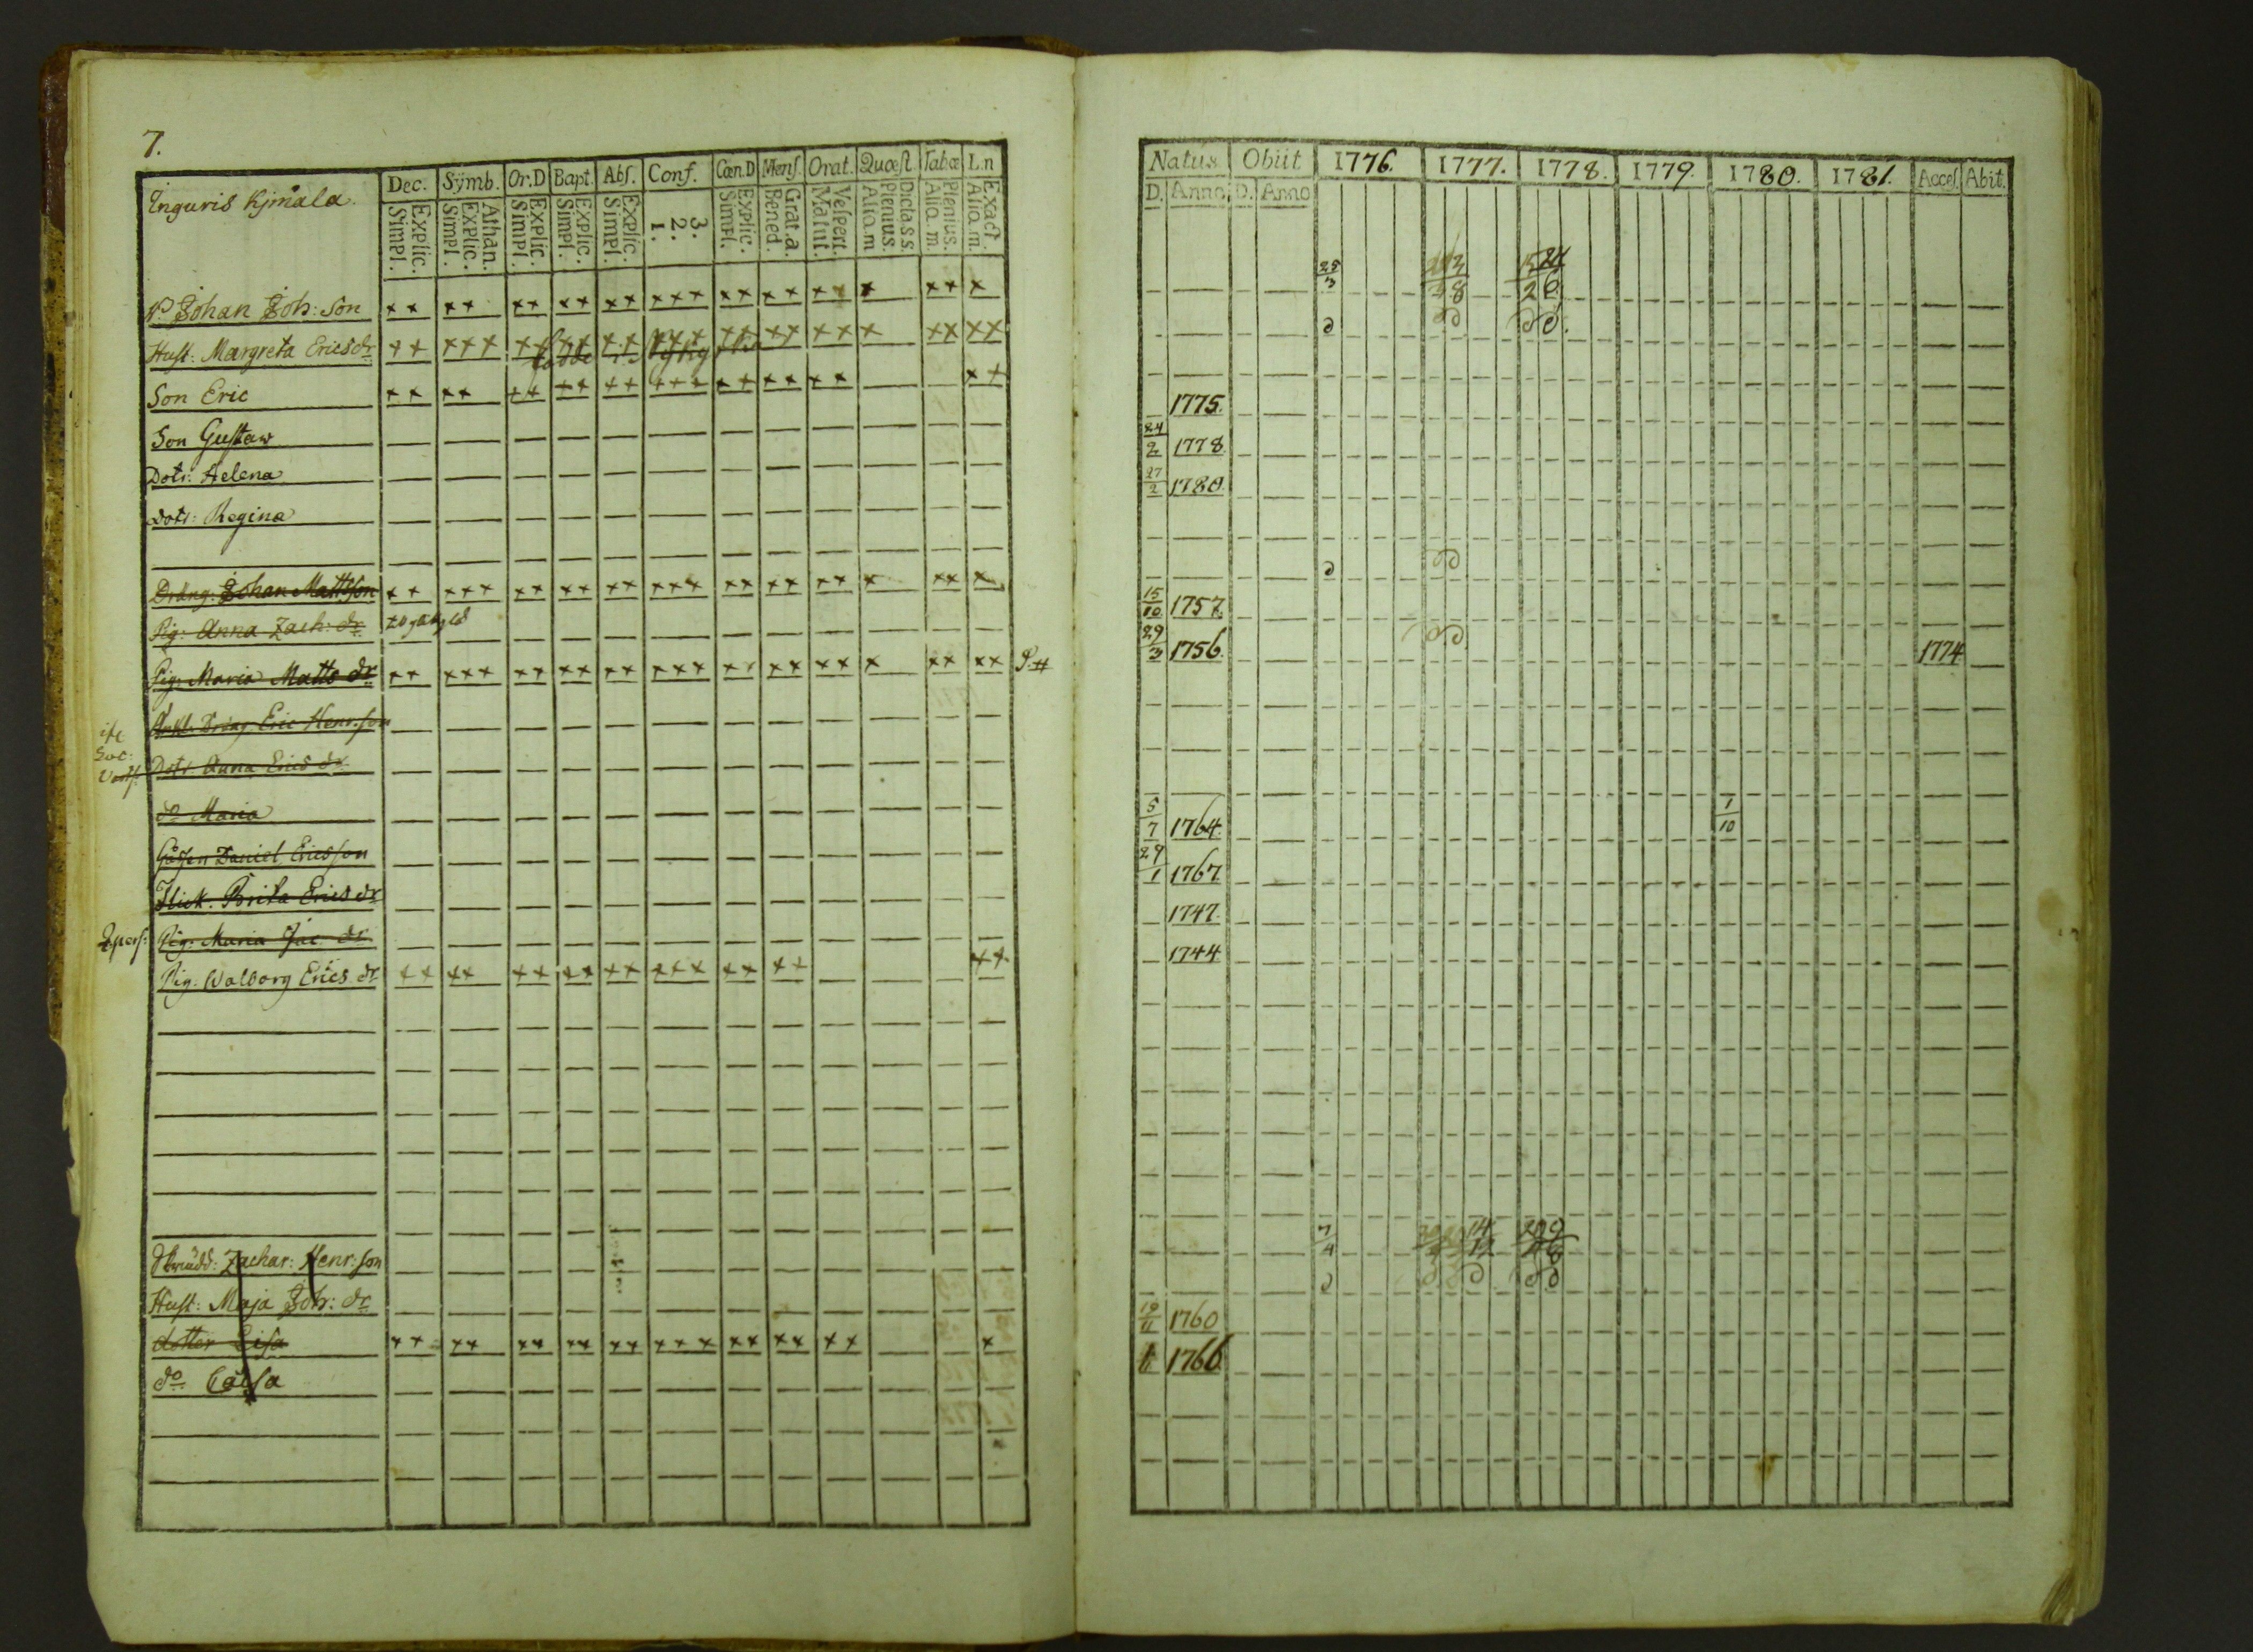 7.
Inguris Kjmåla
Dec. Symb. Or.D Bapt. Abs. Conf. Cœn.D Mens. Orat. Quæst. Tabœ L.n
Explic. Simpl. Athan. Explic. Simpl. Explic. Simpl. Explic. Simpl. Explic. Simpl. 3. 2. 1. Explic. Simpl. Grat.a. Bened. Vespert. Matut. Dicta s.s. Plenius. Aliq.m Plenius. Aliq.m. Exact. Aliq.m.
Johan Joh: son ×× ×× ×× ×× ×× ××× ×× ×× ×× × ×× ×
Hust: Margreta Ericsdr ×× ××× ×× ×× ×× ××× ×× ×× ×× × ×× ××
Son Eric ×× ×× ×× ×× ×× ××× ×× ×× ×× ××
Son Gustaw
Dotr: Helena
Dotr: Regina
Dräng: Johan Mattsson ×× ××× ×× ×× ×× ××× ×× ×× ×× × ×× ×
Pig: Anna Zach: dr
Pig: Maria Matts dr ×× ××× ×× ×× ×× ××× ×× ×× ×× × ×× ××
Dräng Eric Henr.son
Dotr Anna Erics dr
do Maria
Gåssen Daniel Ericsson
Flick. Brita Erics dr
Pig: Maria Jac dr
Pig: Walborg Erics dr ×× ×× ×× ×× ×× ××× ×× ×× ××
Zachar: Henr: son
Hust: Maja Joh: dr
dotter Lisa ×× ×× ×× ×× ×× ××× ×× ×× ×× ×
do Caisa
Natus Obiit 1776. 1777. 1778. 1779. 1780. 1781. Acces. Abit.
D. Anno D. Anno
25/3
1775.
24/2 1778.
27/2 1780.
15/10 1757.
29/3 1756. 1774
5/7 1764. 1/10
29/1 1767.
1747.
1744
7/4
19/11 1760
1766